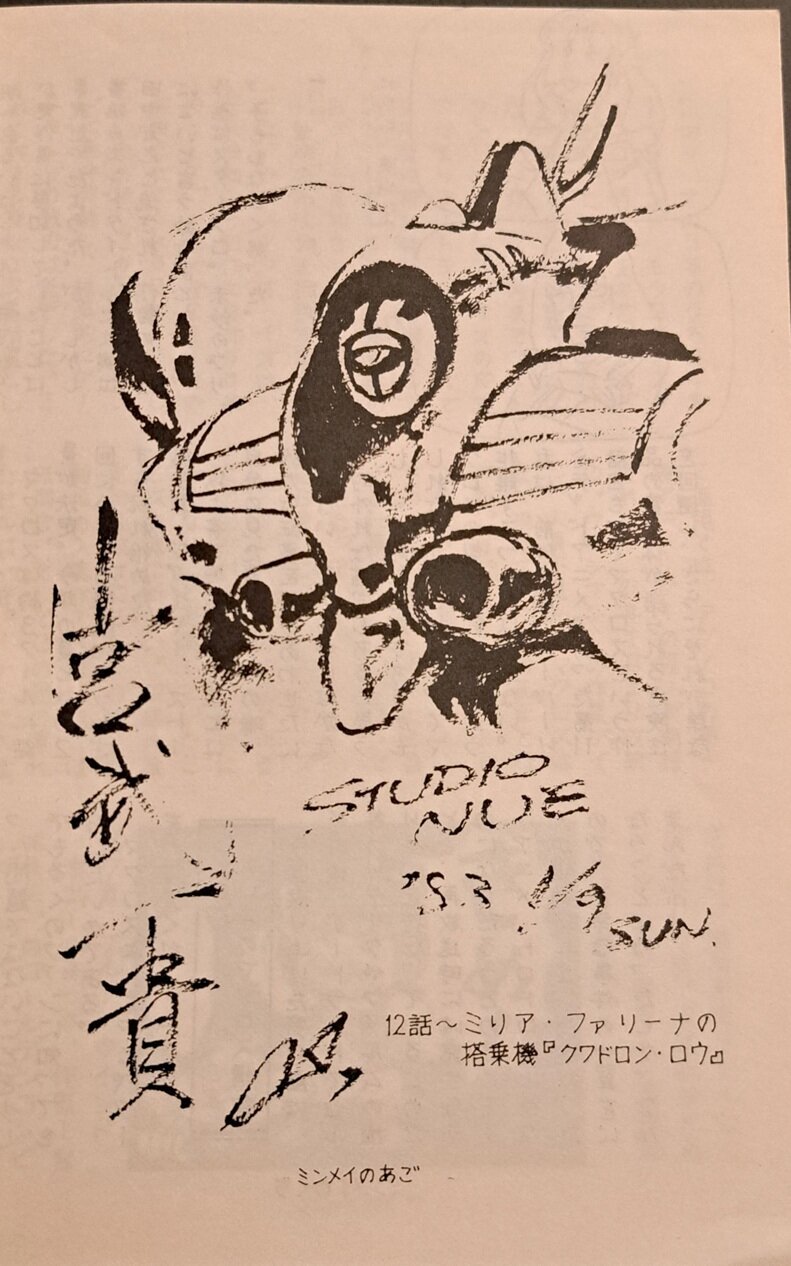 宮武一貴
STUDIO
NUE
'83 1/9 SUN.
12話～ミリア・ファリーナの
搭乗機『クワドロン・ロウ』
ミンメイのあご